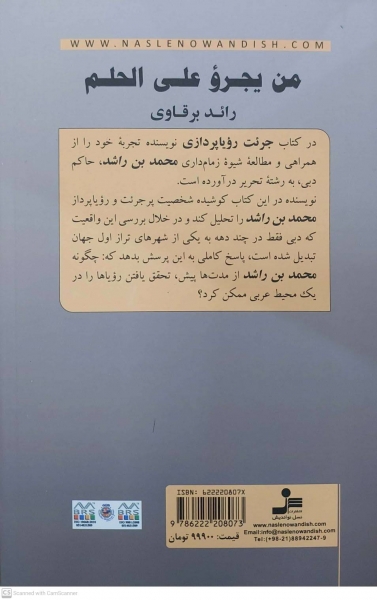 WWW.NASLENOWANDISH.COM
من يجرؤ على الحلم
رائد برقاوی
در کتاب جرئت رؤیاپردازی نویسنده تجربهٔ خود را از
همراهی و مطالعهٔ شیوهٔ زمام‌داری محمد بن راشد، حاکم
دبی، به رشتهٔ تحریر درآورده است.
نویسنده در این کتاب کوشیده شخصیت پرجرئت و رؤیاپرداز
محمد بن راشد را تحلیل کند و در خلال بررسی این واقعیت
که دبی فقط در چند دهه به یکی از شهرهای تراز اول جهان
تبدیل شده است، پاسخ کاملی به این پرسش بدهد که: چگونه
محمد بن راشد از مدت‌ها پیش، تحقق یافتن رؤیاها را در
یک محیط عربی ممکن کرد؟
ISBN: 622220807X
9 786222 208073
قیمت: ۹۹۹۰۰ تومان
نسل نواندیش
www.naslenowandish.com
Email:info@naslenowandish.com
Tel:(+98-21)88942247-9
BRS
BRS
CS Scanned with CamScanner